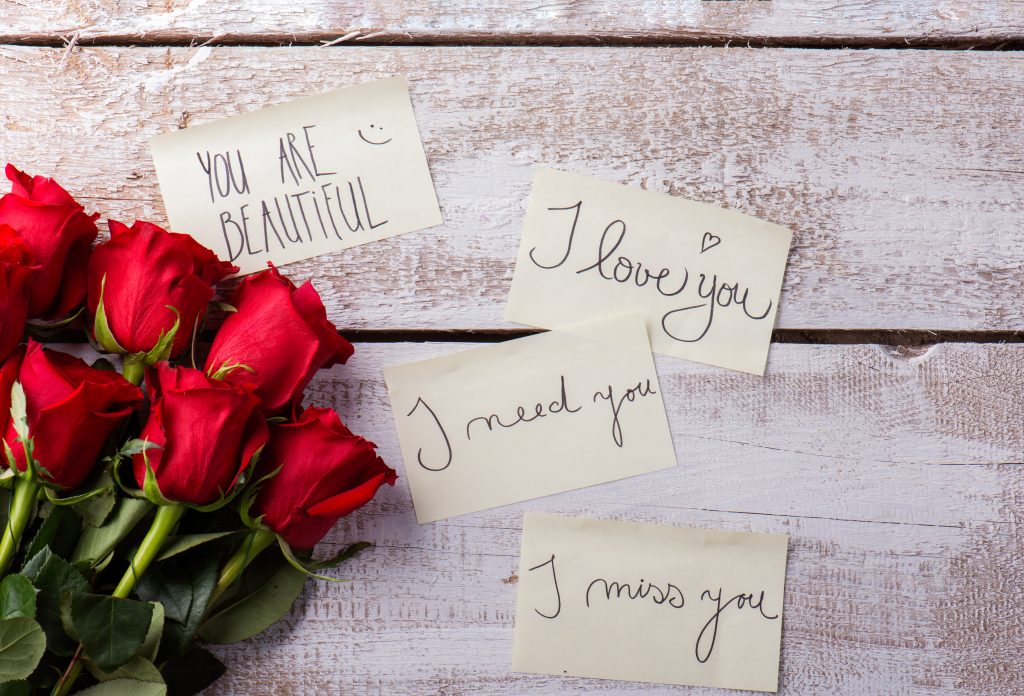 YOU ARE
BEAUTiFUL
I love you
I need you
I miss you